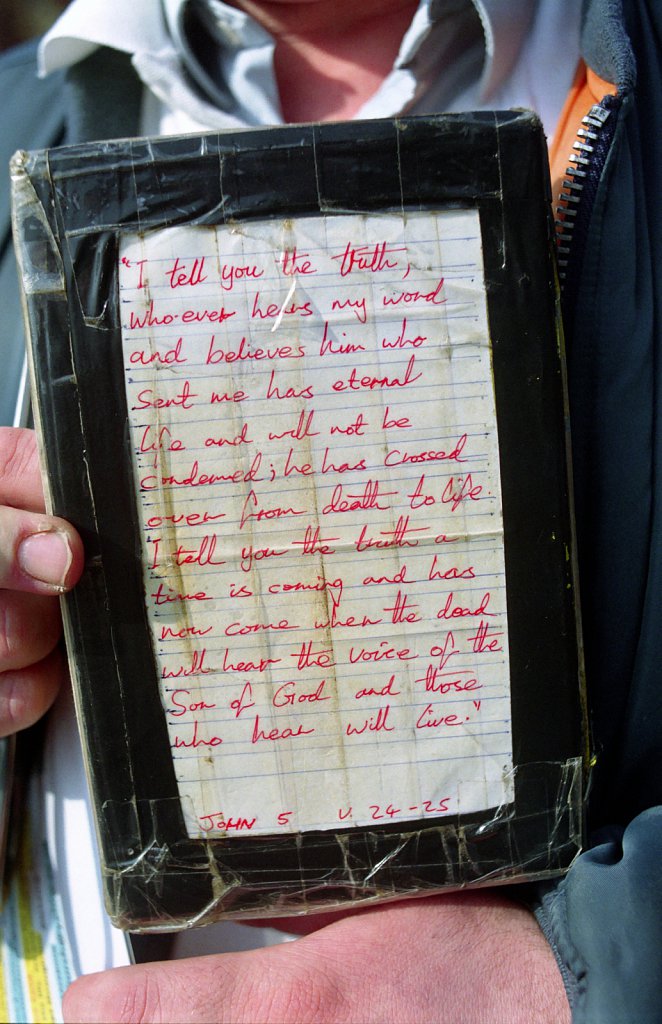 "I tell you the truth,
who-ever hears my word
and believes him who
Sent me has eternal
life and will not be
condemned; he has crossed
over from death to life.
I tell you the truth a
time is coming and has
now come when the dead
will hear the voice of the
Son of God and those
who hear will live."
JOHN 5 V. 24-25